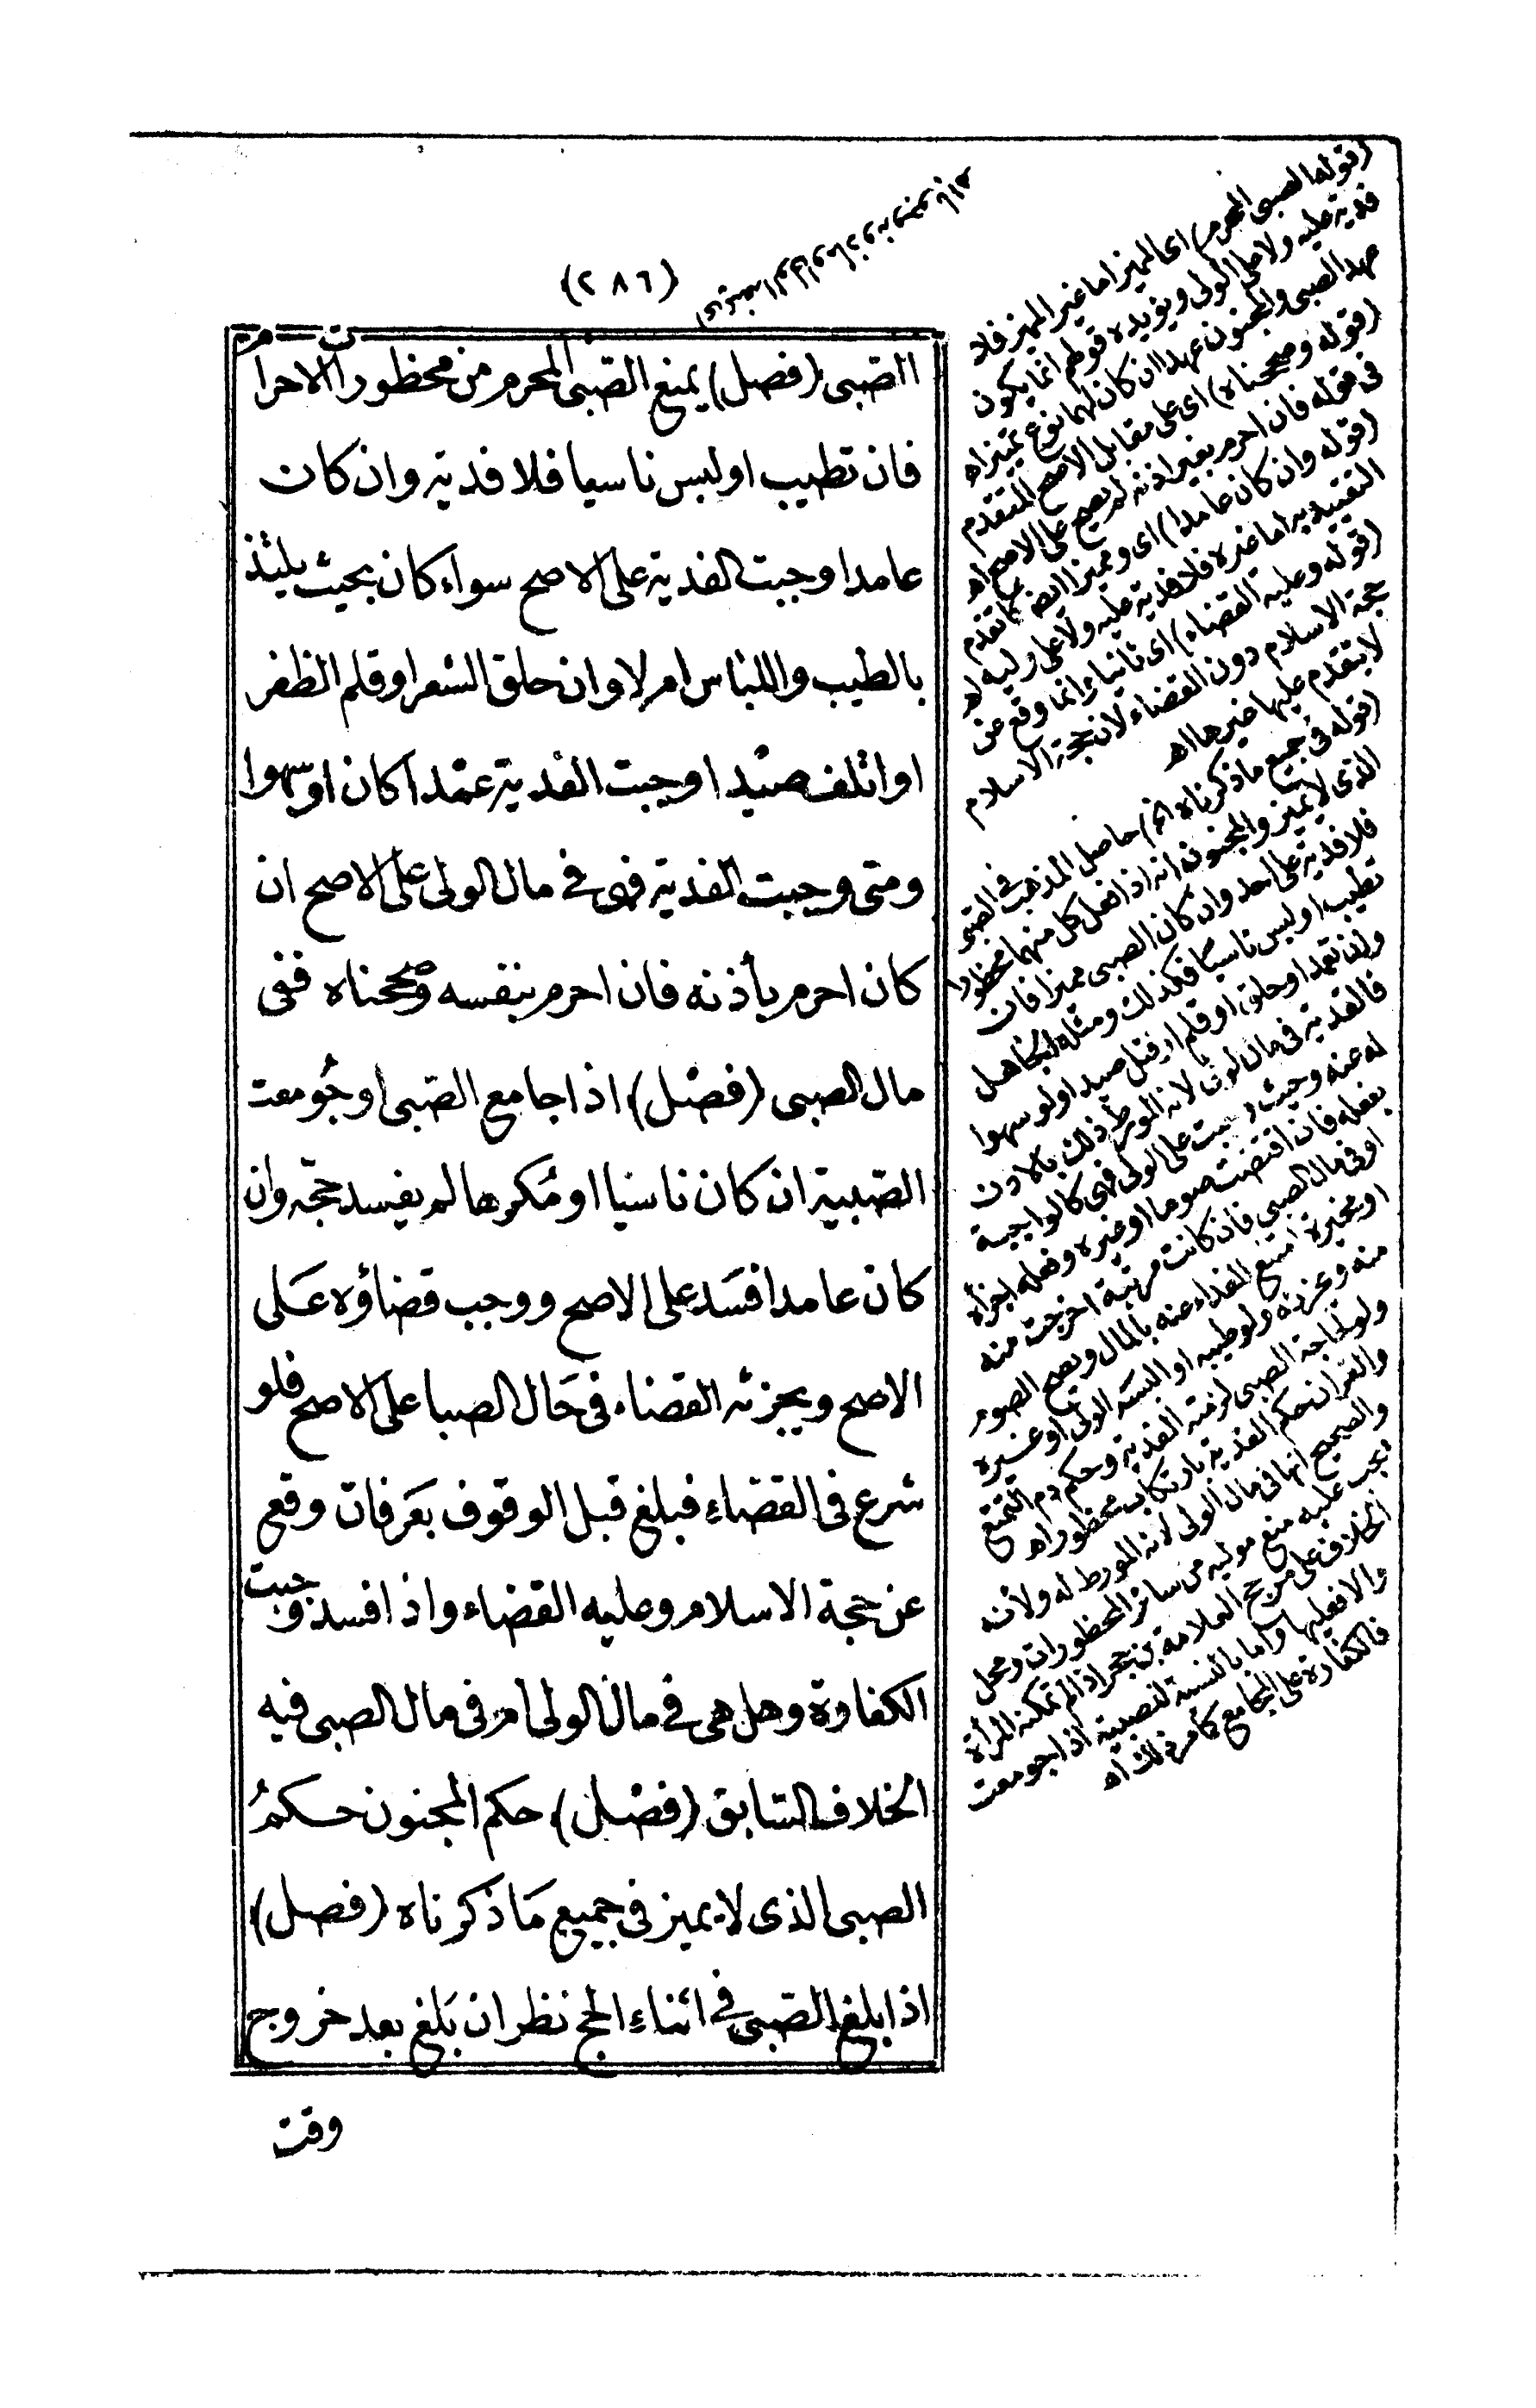 (٢٨٦)
الصبى (فصل) يمنع الصبى المحرم من محظورالاحرا
م
فان تطيب اولبس ناسيا فلا فدية وان كان
عامدا وجبت الفدية على الاصح سواء كان بحيث يلتذ
بالطيب واللباس ام لا وان حلق الشعر اوقلم الظفر
او اتلف صيدا وجبت الفدية عمدا كان اوسهوا
ومتى وجبت الفدية فهى فى مال الولى على الاصح ان
كان احرم بأذنه فان احرم بنفسه وصححناه ففى
مال الصبى (فصل) اذا جامع الصبى اوجُومعت
الصبية ان كان ناسيا او مُكرها لم يفسد حجّه وان
كان عامدا فسَد على الاصح ووجب قضاؤه عَلى
الاصح ويجزئه القضاء فى حَال الصبا على الاصح فلو
شرع فى القضاء فبلغ قبل الوقوف بعَرفات وقع
عن حجة الاسلام وعليه القضاء واذا فسد وجبت
الكفارة وهل هى فى مال الولى أم فى مال الصبى فيه
الخلاف السابق (فصل) حكم المجنون حكمُ
الصبى الذى لا يميز فى جميع مَا ذكرناه (فصل)
اذا بلغ الصبى فى اثناء الحج نظر ان بَلغ بعد خروج
وقت
(قوله الصبى المحرم) اى المميز اما غير المميز فلا
فدية عليه ولا على الولى ويؤيده قولهم انما يكون
عمد الصبى والمجنون عمدا ان كان لهما نوع تمييز اه
(قوله وصححناه) اى على مقابل الاصح المتقدم
فى قوله فان احرم بغير اذنه لم يصح على الاصح اه
(قوله وان كان عامدا) اى ومميزا
التقييد به اما غيره فلا فدية عليه ولا على وليه اه
(قوله وعليه القضاء) اى ثانيا وانما وقع عن
حجة الاسلام دون القضاء لان حجة الاسلام
لا يتقدم عليها غيرها اه
(قوله فى جميع ما ذكرناه الخ) حاصل المذهب فى الصبى
الذى لا يميز والمجنون انه اذا فعل كل منهما محظورا
فلا فدية على احد وان كان الصبى مميزا فان
تطيب او لبس ناسيا فكذلك ومثله الجاهل
وان تعمد او حلق او قلم او قتل صيدا ولو سهوا
فالفدية فى مال الولى لانه المورط ذلك بالاذن
له عنه وحيث وجبت على الولى فهى كالواجبة
بفعله فان اقتضت صوما او غيره وفعله اجزأه
او فى مال الصبى فان كانت مرتبة اخرجت منه
او مخيرة امتنع الفداء عنه بالمال ويصح الصوم
منه ولو طيبه او البسه الولى او غيره
ولو لحاجة الصبى لزمته الفدية وحكم دم التمتع
والقران حكم الفدية بارتكاب محظور اه
والصحيح انها فى مال الولى لانه المورط له ولانه
يجب عليه منع موليه من سائر المحظورات ومحل
الخلاف على مرجح العلامة بن حجر اذا لم تمكنه المرأة
والا فعليها واما بالنسبة للصبية اذا جومعت
فالكفارة على المجامع كما مر